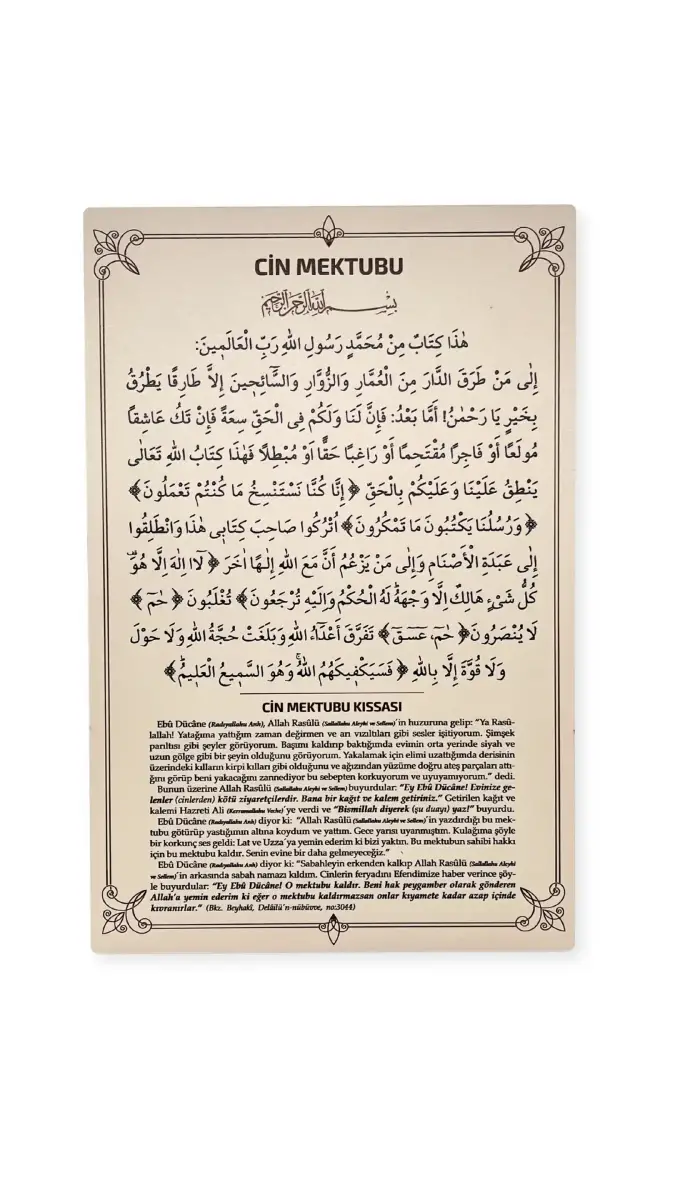 CİN MEKTUBU
بِسْمِ اللهِ الرَّحْمٰنِ الرَّحِيمِ
هٰذَا كِتَابٌ مِنْ مُحَمَّدٍ رَسُولِ اللهِ رَبِّ الْعَالَمِينَ:
إِلَى مَنْ طَرَقَ الدَّارَ مِنَ الْعُمَّارِ وَالزُّوَّارِ وَالسَّائِحِينَ إِلَّا طَارِقًا يَطْرُقُ
بِخَيْرٍ يَا رَحْمٰنُ! أَمَّا بَعْدُ: فَإِنَّ لَنَا وَلَكُمْ فِى الْحَقِّ سِعَةً فَإِنْ تَكُ عَاشِقاً
مُولَعًا أَوْ فَاجِراً مُقْتَحِمًا أَوْ رَاغِبًا حَقًّا اَوْ مُبْطِلاً فَهٰذَا كِتَابُ اللهِ تَعَالٰى
يَنْطِقُ عَلَيْنَا وَعَلَيْكُمْ بِالْحَقِّ ﴿ إِنَّا كُنَّا نَسْتَنْسِخُ مَا كُنْتُمْ تَعْمَلُونَ ﴾
﴿ وَرُسُلُنَا يَكْتُبُونَ مَا تَمْكُرُونَ ﴾ اُتْرُكُوا صَاحِبَ كِتَابِى هٰذَا وَانْطَلِقُوا
إِلَى عَبَدَةِ الْأَصْنَامِ وَإِلَى مَنْ يَزْعُمُ أَنَّ مَعَ اللهِ إِلٰهًا اٰخَرَ ﴿ لَآ اِلٰهَ اِلَّا هُوَ
كُلُّ شَىْءٍ هَالِكٌ اِلَّا وَجْهَهُ لَهُ الْحُكْمُ وَاِلَيْهِ تُرْجَعُونَ ﴾ تُغْلَبُونَ ﴿ حٰمٓ ﴾
لَا يُنْصَرُونَ ﴿ حٰمٓ، عٓسٓقٓ ﴾ تَفَرَّقَ أَعْدَٓاءُ اللهِ وَبَلَغَتْ حُجَّةُ اللهِ وَلَا حَوْلَ
وَلَا قُوَّةَ إِلَّا بِاللهِ ﴿ فَسَيَكْفِيكَهُمُ اللهُ وَهُوَ السَّمِيعُ الْعَلِيمُ ﴾
CİN MEKTUBU KISSASI
Ebû Dücâne (Radıyallahu Anh), Allah Rasûlü (Sallallahu Aleyhi ve Sellem)'in huzuruna gelip: “Ya Rasû-
lallah! Yatağıma yattığım zaman değirmen ve arı vızıltıları gibi sesler işitiyorum. Şimşek
parıltısı gibi şeyler görüyorum. Başımı kaldırıp baktığımda evimin orta yerinde siyah ve
uzun gölge gibi bir şeyin olduğunu görüyorum. Yakalamak için elimi uzattığımda derisinin
üzerindeki kılların kirpi kılları gibi olduğunu ve ağızından yüzüme doğru ateş parçaları attı-
ğını görüp beni yakacağını zannediyor bu sebepten korkuyorum ve uyuyamıyorum.” dedi.
Bunun üzerine Allah Rasûlü (Sallallahu Aleyhi ve Sellem) buyurdular: “Ey Ebû Dücâne! Evinize ge-
lenler (cinlerden) kötü ziyaretçilerdir. Bana bir kağıt ve kalem getiriniz.” Getirilen kağıt ve
kalemi Hazreti Ali (Kerramallahu Veche)'ye verdi ve “Bismillah diyerek (şu duayı) yaz!” buyurdu.
Ebû Dücâne (Radıyallahu Anh) diyor ki: “Allah Rasûlü (Sallallahu Aleyhi ve Sellem)'in yazdırdığı bu mek-
tubu götürüp yastığının altına koydum ve yattım. Gece yarısı uyanmıştım. Kulağıma şöyle
bir korkunç ses geldi: Lat ve Uzza'ya yemin ederim ki bizi yaktın. Bu mektubun sahibi hakkı
için bu mektubu kaldır. Senin evine bir daha gelmeyeceğiz.”
Ebû Dücâne (Radıyallahu Anh) diyor ki: “Sabahleyin erkenden kalkıp Allah Rasûlü (Sallallahu Aleyhi
ve Sellem)'in arkasında sabah namazı kıldım. Cinlerin feryadını Efendimize haber verince şöy-
le buyurdular: “Ey Ebû Dücâne! O mektubu kaldır. Beni hak peygamber olarak gönderen
Allah'a yemin ederim ki eğer o mektubu kaldırmazsan onlar kıyamete kadar azap içinde
kıvranırlar.” (Bkz. Beyhakî, Delâilü'n-nübüvve, no:3044)